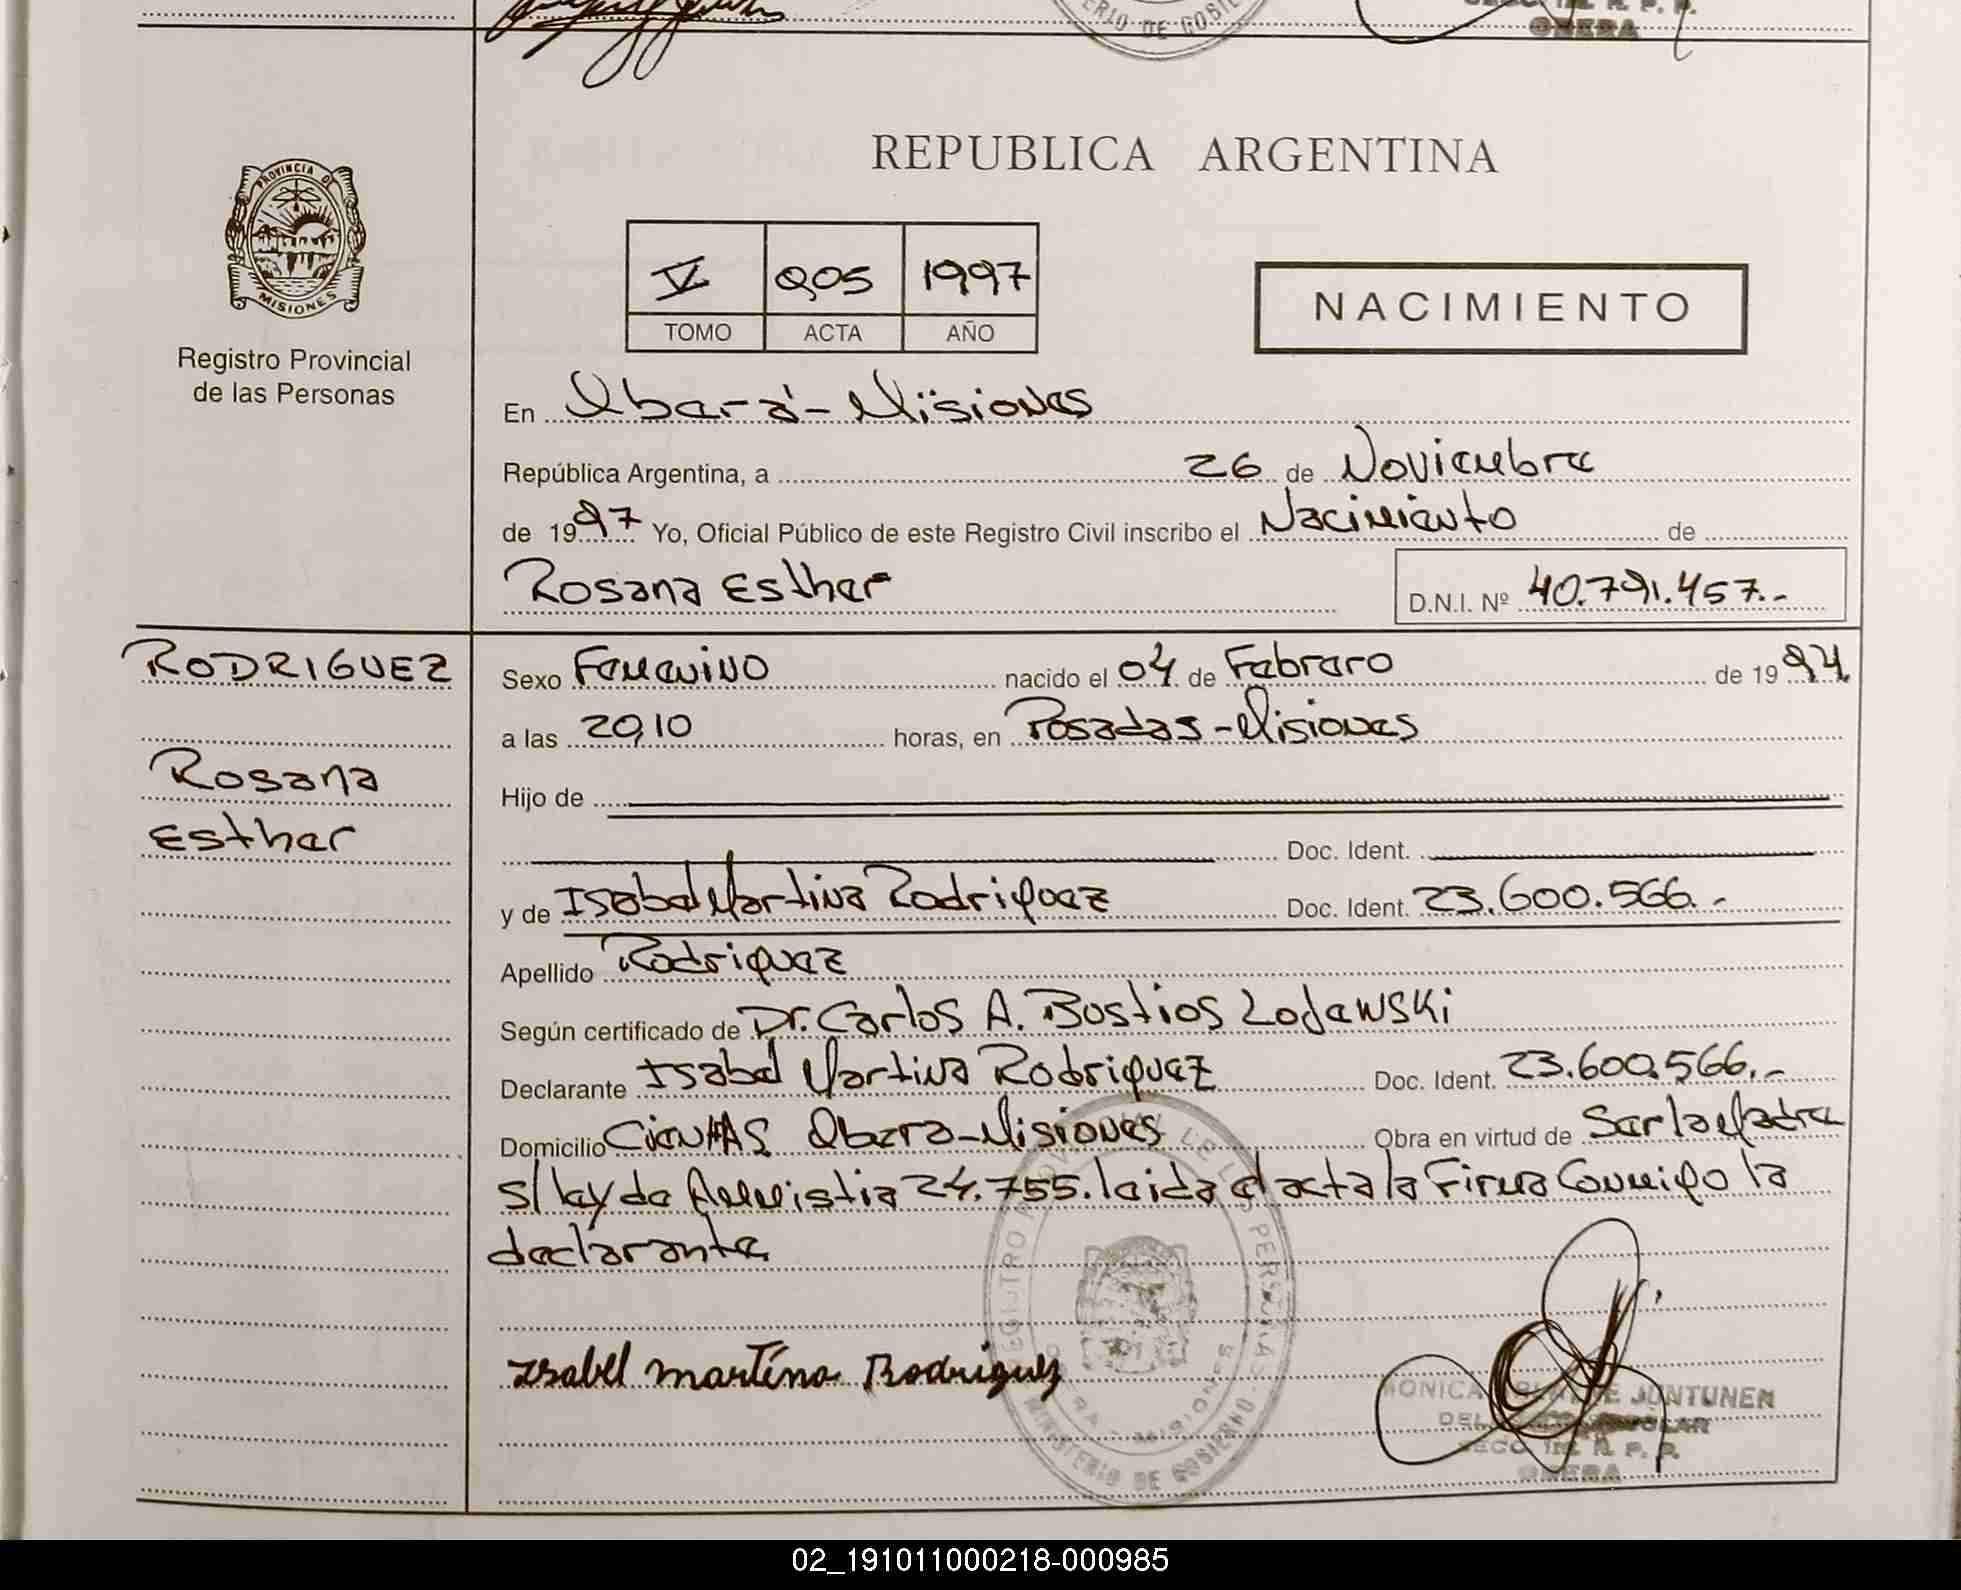 OBERA
REPUBLICA ARGENTINA
PROVINCIA DE
MISIONES
Registro Provincial
de las Personas
V 905 1997
TOMO ACTA AÑO
NACIMIENTO
En Oberá - Misiones
República Argentina, a 26 de Noviembre
de 1997 Yo, Oficial Público de este Registro Civil inscribo el Nacimiento de
Rosana Esther D.N.I. Nº 40.791.457.-
RODRIGUEZ
Rosana
Esther
Sexo Femenino nacido el 04 de Febrero de 1994
a las 20,10 horas, en Posadas - Misiones
Hijo de
Doc. Ident.
y de Isabel Martina Rodriguez Doc. Ident. 23.600.566.-
Apellido Rodriguez
Según certificado de Dr. Carlos A. Bustios
Declarante Isabel Martina Rodriguez Doc. Ident. 23.600.566.-
Domicilio Obera - Misiones Obra en virtud de Ser la Madre
S/ ley de Amnistia 24.755. leida el acta la Firma Conmigo la
declarante
Isabel Martina Rodriguez
REGISTRO PROVINCIAL DE LAS PERSONAS
MINISTERIO DE GOBIERNO
MONICA JUNTUNEN
OBERA
02_191011000218-000985